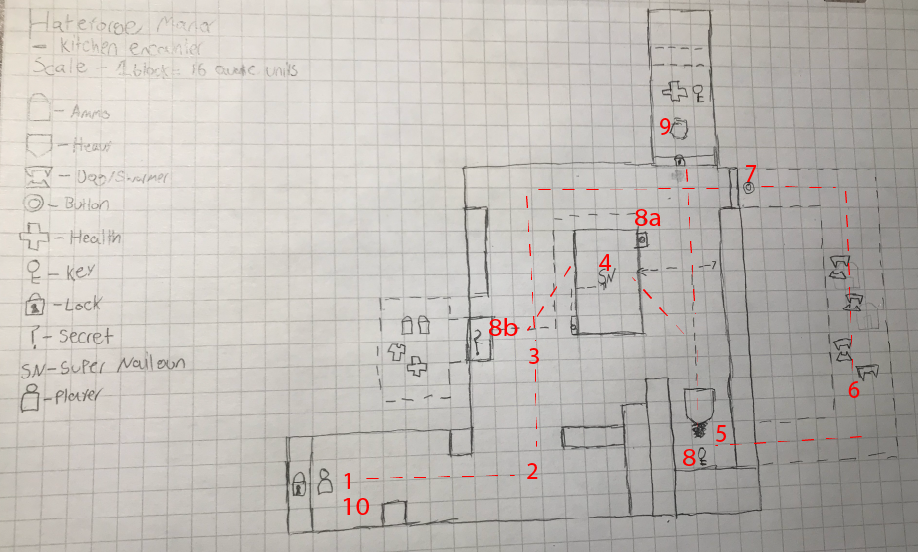 Haterowe Mana
- Kitchen encounter
Scale - 1 block = 16 quake units
- Ammo
- Heavy
- Dog/Swarmer
- Button
- Health
- Key
- Lock
? - Secret
SN - Super Nailgun
- Player
9
7
8a
4
SN
8b
?
3
6
5
8
2
1
10